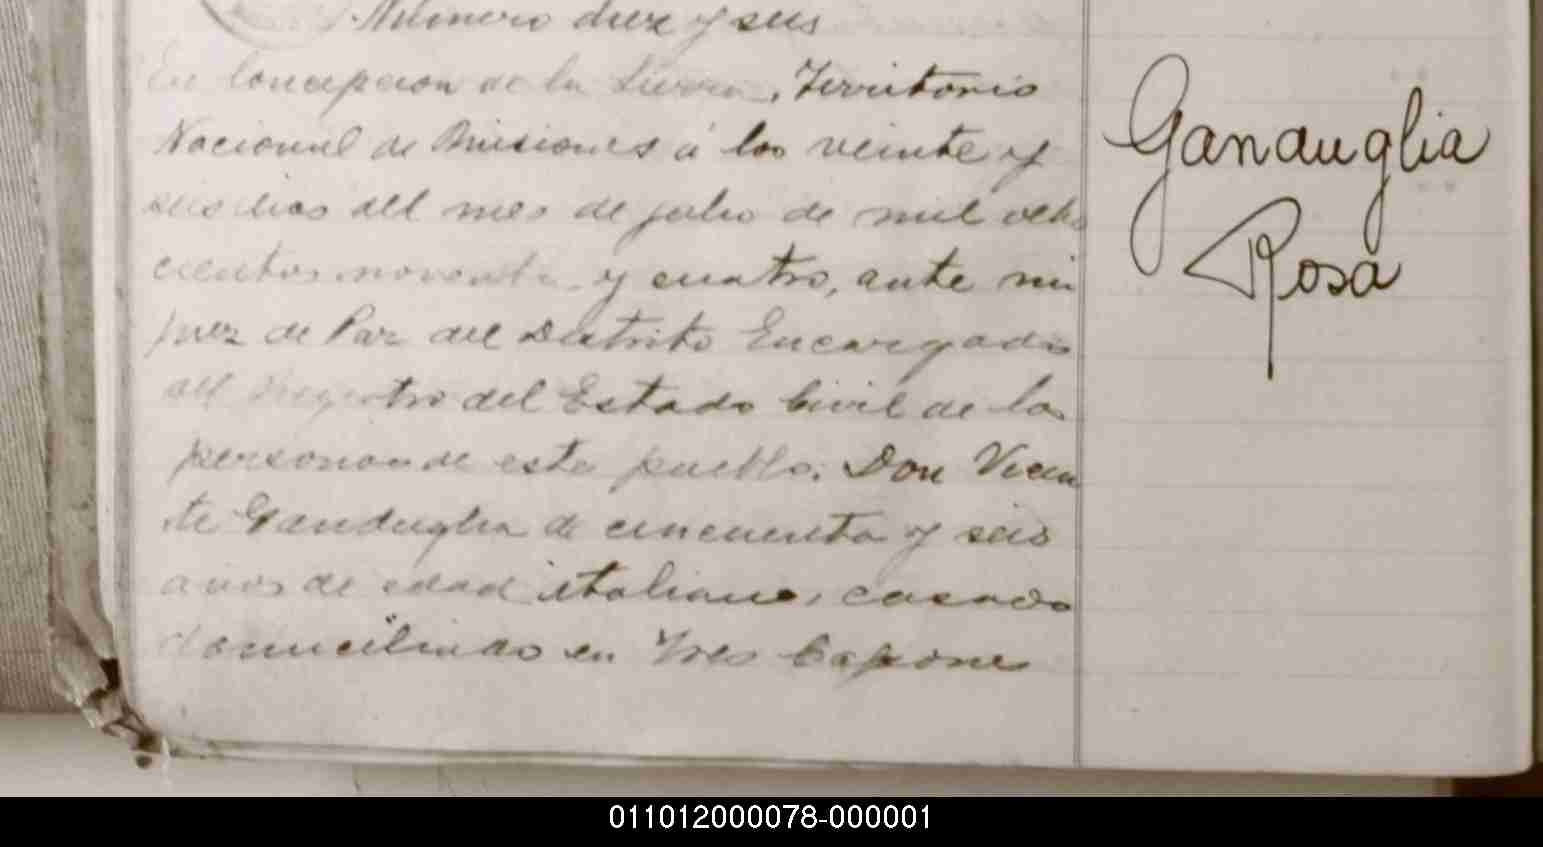 Número diez y seis
En Concepcion de la Sierra, Territorio
Nacional de Misiones á los veinte y
seis dias del mes de julio de mil ocho
cientos noventa y cuatro, ante mi
juez de Paz del Distrito Encargado
del Registro del Estado Civil de las
personas de este pueblo, Don Vicen
te Ganduglia de cincuenta y seis
años de edad italiano, casado
domiciliado en Tres Capones
Ganduglia
Rosa
011012000078-000001